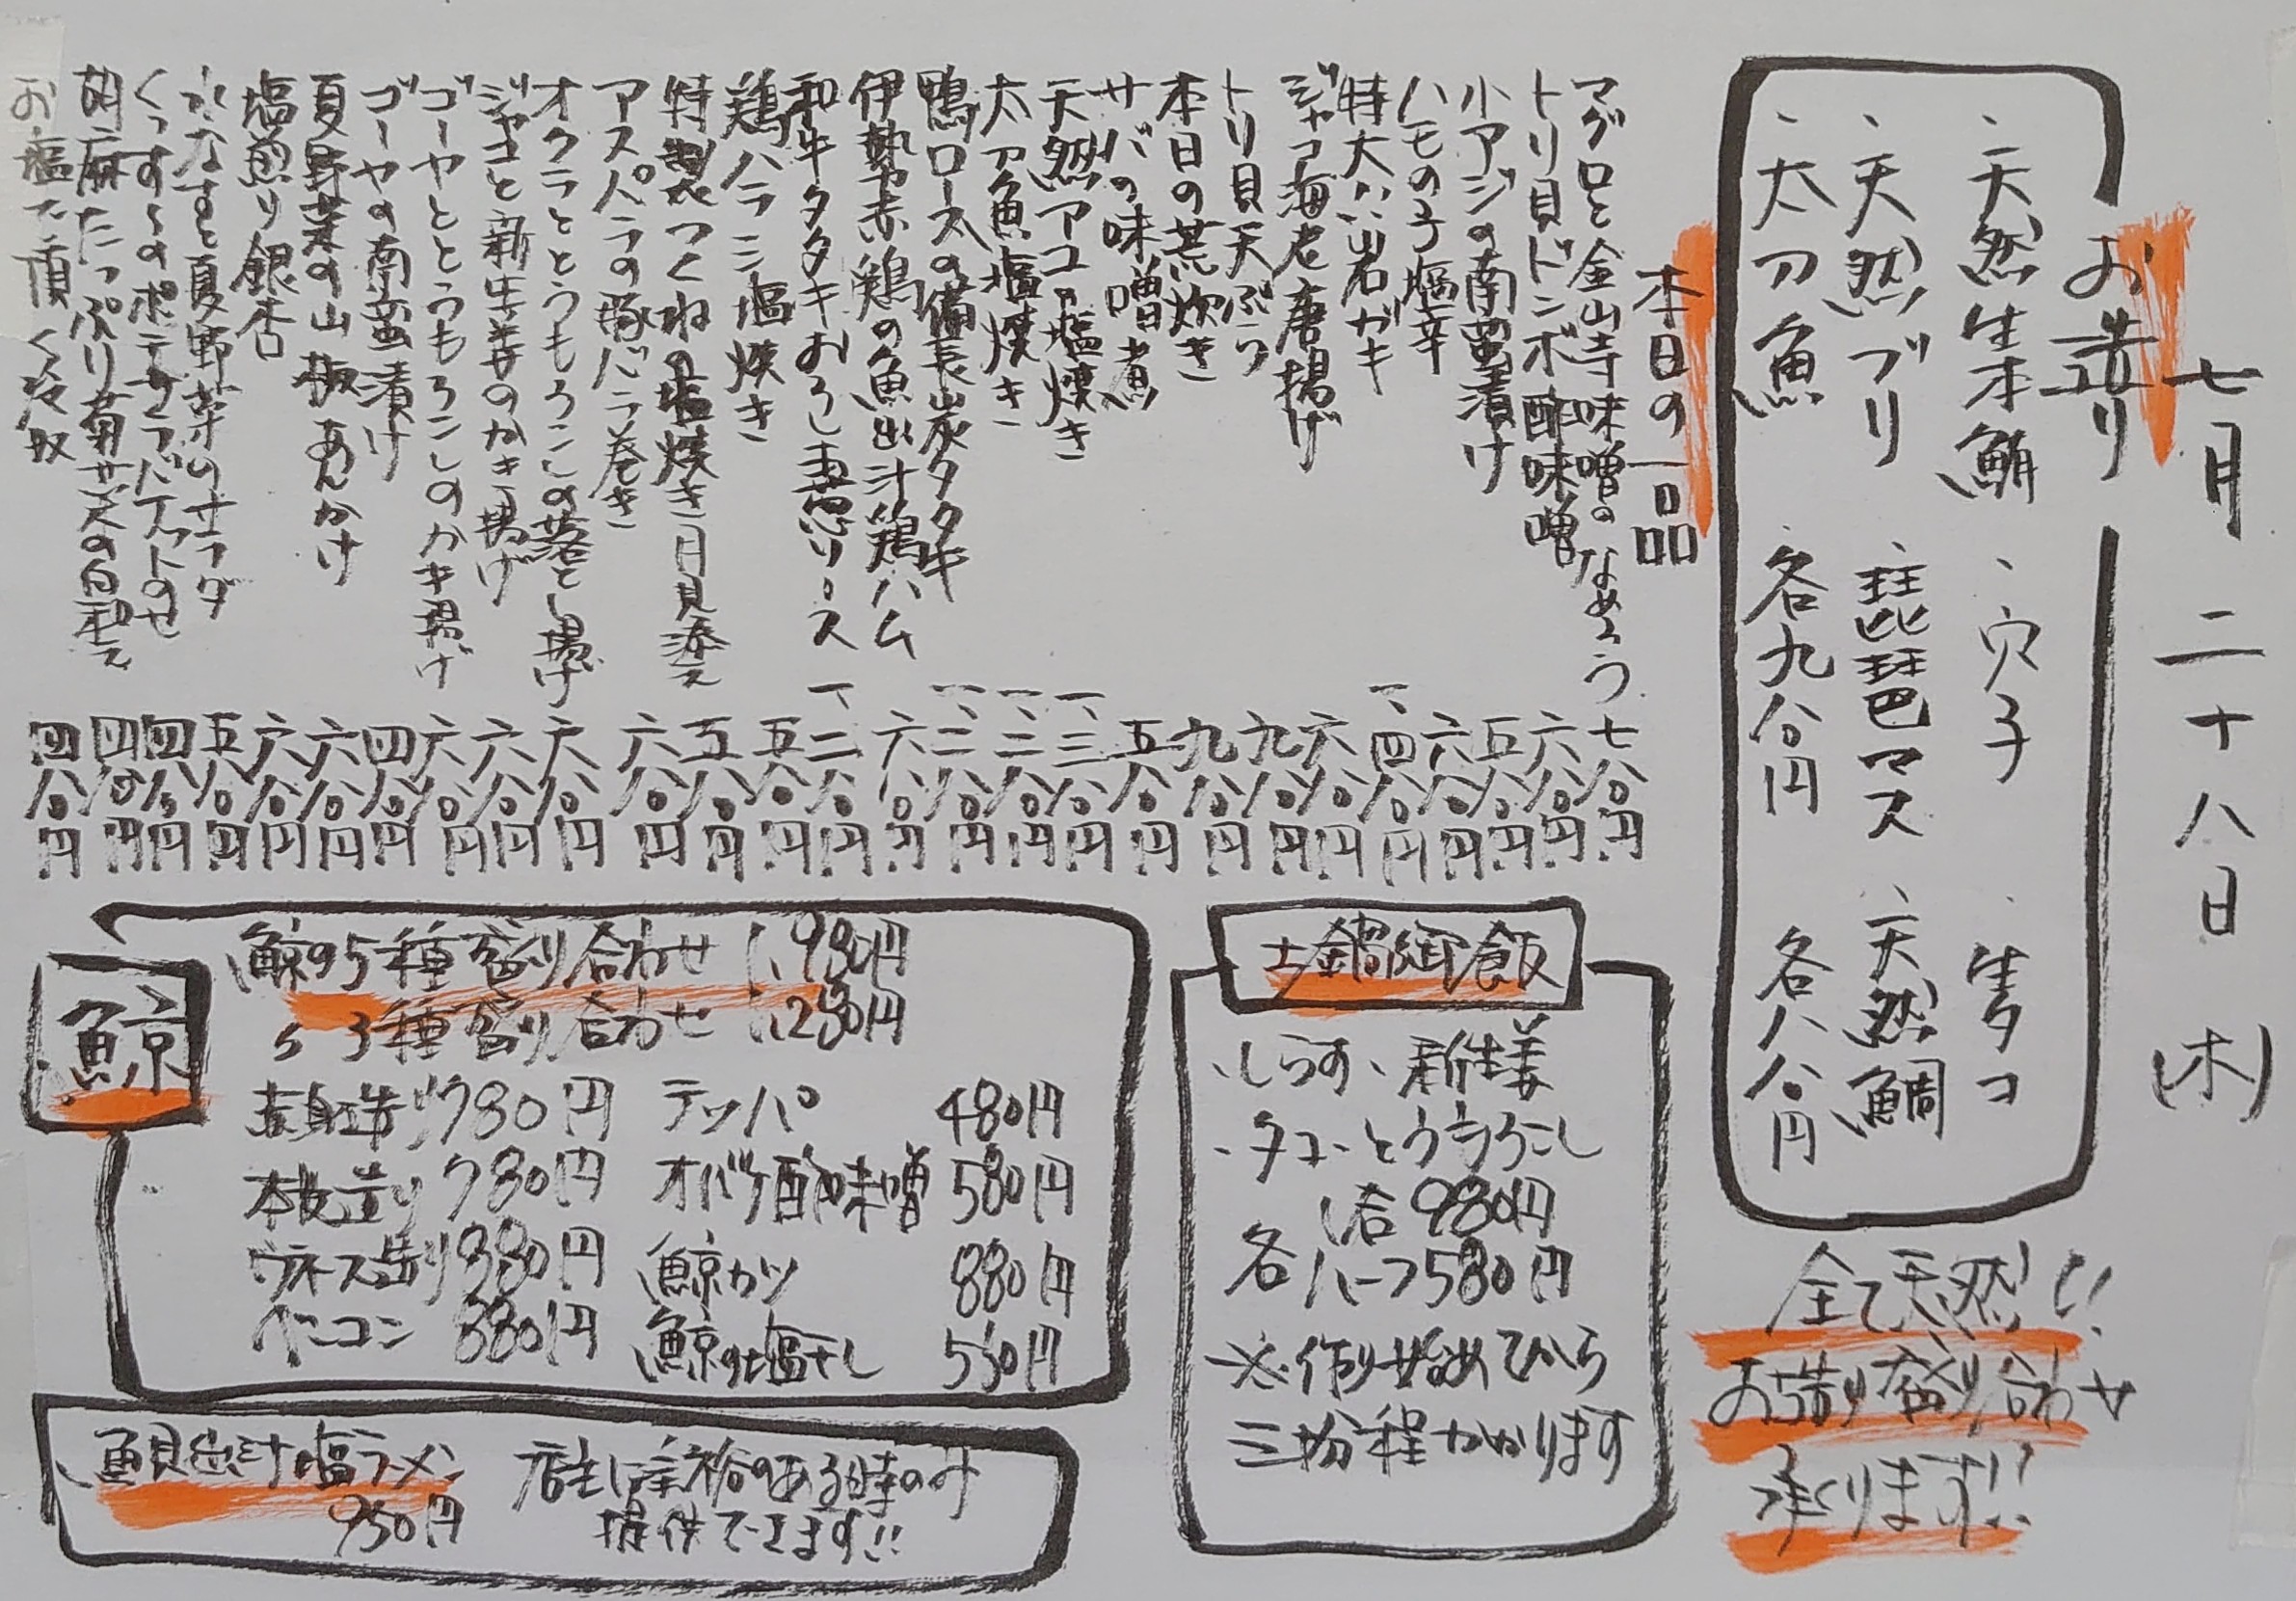 七月二十八日(木)
お造り
、天然生本鮪 、穴子 、生タコ
、天然ブリ 、琵琶マス 、天然鯛
、太刀魚 各九八〇円 各八八〇円
全て天然!!
お造り盛り合わせ
承ります!!
本日の一品
マグロと金山寺味噌のなめろう 七八〇円
トリ貝ドンボ酢味噌 六八〇円
小アジの南蛮漬け 五八〇円
ハモの子塩辛 六八〇円
特大!!岩ガキ 一、四八〇円
ジャコ海老唐揚げ 六八〇円
トリ貝天ぷら 九八〇円
本日の荒炊き 九八〇円
サバの味噌煮 五八〇円
天然アユの塩焼き 一、三八〇円
太刀魚塩焼き 一、二八〇円
鴨ロースの備長炭タタキ 一、二八〇円
伊勢赤鶏の魚出汁鶏ハム 六八〇円
和牛タタキおろし走りソース 一、二八〇円
鶏ハラミ塩焼き 五八〇円
特製つくねの塩焼き月見添え 五八〇円
アスパラの豚バラ巻き 六八〇円
オクラととうもろこしの落とし揚げ 六八〇円
ジャコと新生姜のかき揚げ 六八〇円
ゴーヤととうもろこしのかき揚げ 六八〇円
ゴーヤの南蛮漬け 四八〇円
夏野菜の山椒あんかけ 六八〇円
塩煎り銀杏 六八〇円
水なすと夏野菜のサラダ 五八〇円
くっすんのポテサラバケットのせ 四八〇円
胡麻たっぷり菊菜の白和え 四八〇円
お塩で頂く冷奴 四八〇円
土鍋御飯
、しらす、新生姜
、タコ、とうもろこし
一合 980円
各ハーフ580円
※作り始めてから
三拾分程かかります
鯨
鯨の5種盛り合わせ 1,980円
〃 3種盛り合わせ 1,280円
赤身造り 780円 テッパ 480円
本皮造り 780円 オバケ酢味噌 580円
ウネス造り 880円 鯨カツ 880円
ベーコン 880円 鯨の塩干し 550円
魚貝出汁塩ラーメン 950円
店主に余裕のある時のみ
提供できます!!